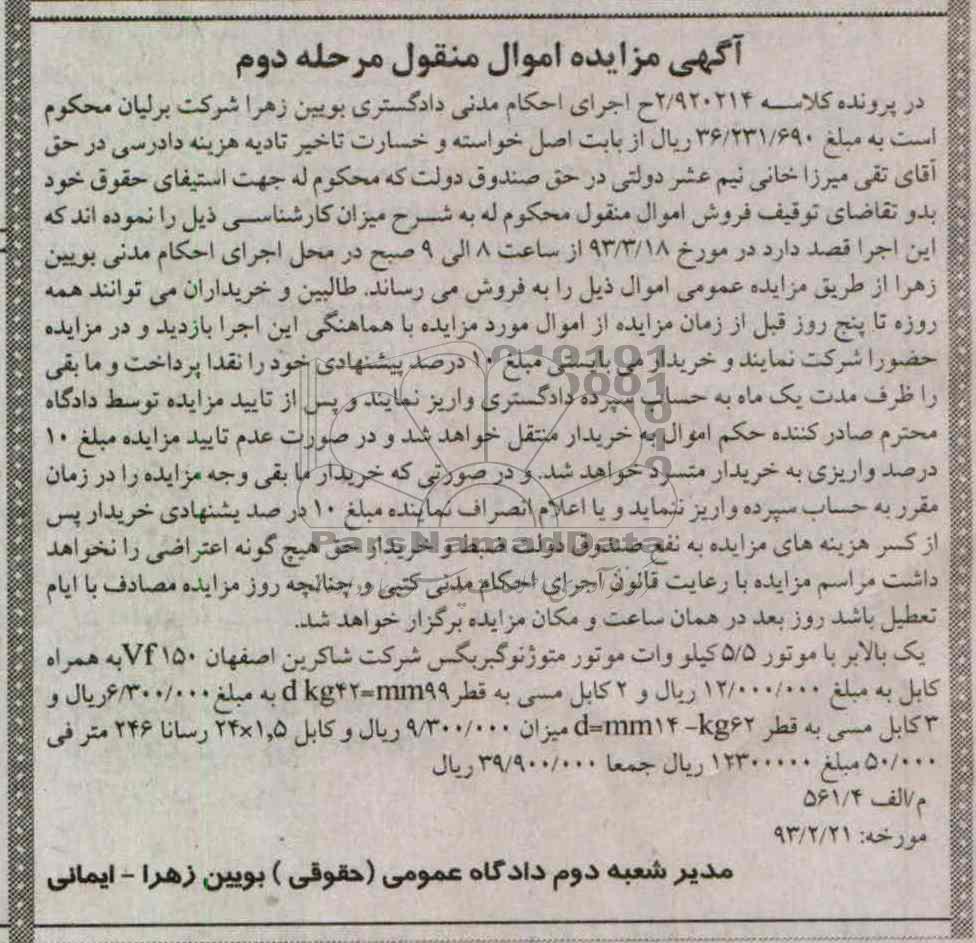 آگهی مزایده اموال منقول مرحله دوم
در پرونده کلاسه ۲/۹۲۰۲۱۴ح اجرای احکام مدنی دادگستری بویین زهرا شرکت برلیان محکوم
است به مبلغ ۳۶/۲۳۱/۶۹۰ ریال از بابت اصل خواسته و خسارت تاخیر تادیه هزینه دادرسی در حق
آقای تقی میرزا خانی نیم عشر دولتی در حق صندوق دولت که محکوم له جهت استیفای حقوق خود
بدو تقاضای توقیف فروش اموال منقول محکوم له به شرح میزان کارشناسی ذیل را نموده اند که
این اجرا قصد دارد در مورخ ۹۳/۳/۱۸ از ساعت ۸ الی ۹ صبح در محل اجرای احکام مدنی بویین
زهرا از طریق مزایده عمومی اموال ذیل را به فروش می رساند. طالبین و خریداران می توانند همه
روزه تا پنج روز قبل از زمان مزایده از اموال مورد مزایده با هماهنگی این اجرا بازدید و در مزایده
حضورا شرکت نمایند و خریدار می بایستی مبلغ ۱۰ درصد پیشنهادی خود را نقدا پرداخت و ما بقی
را ظرف مدت یک ماه به حساب سپرده دادگستری واریز نمایند و پس از تایید مزایده توسط دادگاه
محترم صادر کننده حکم اموال به خریدار منتقل خواهد شد و در صورت عدم تایید مزایده مبلغ ۱۰
درصد واریزی به خریدار متسرد خواهد شد. و در صورتی که خریدار ما بقی وجه مزایده را در زمان
مقرر به حساب سپرده واریز ننماید و یا اعلام انصراف نماینده مبلغ ۱۰ در صد یشنهادی خریدار پس
از کسر هزینه های مزایده به نفع صندوق دولت ضبط و خریدار حق هیچ گونه اعتراضی را نخواهد
داشت مراسم مزایده با رعایت قانون اجرای احکام مدنی کتبی و چنانچه روز مزایده مصادف با ایام
تعطیل باشد روز بعد در همان ساعت و مکان مزایده برگزار خواهد شد.
یک بالابر با موتور ۵/۵ کیلو وات موتور متوژنوگیربگس شرکت شاکرین اصفهان Vf۱۵۰ به همراه
کابل به مبلغ ۱۲/۰۰۰/۰۰۰ ریال و ۲ کابل مسی به قطر d kg۴۲=mm۹۹ به مبلغ ۶/۳۰۰/۰۰۰ریال و
۳ کابل مسی به قطر d=mm۱۴ -kg۶۲ میزان ۹/۳۰۰/۰۰۰ ریال و کابل ۲۴×۱,۵ رسانا ۲۴۶ متر فی
۵۰/۰۰۰ مبلغ ۱۲۳۰۰۰۰۰ ریال جمعا ۳۹/۹۰۰/۰۰۰ ریال
م/الف ۵۶۱/۴
مورخه: ۹۳/۲/۲۱
مدیر شعبه دوم دادگاه عمومی (حقوقی) بویین زهرا - ایمانی
ParsNamadData